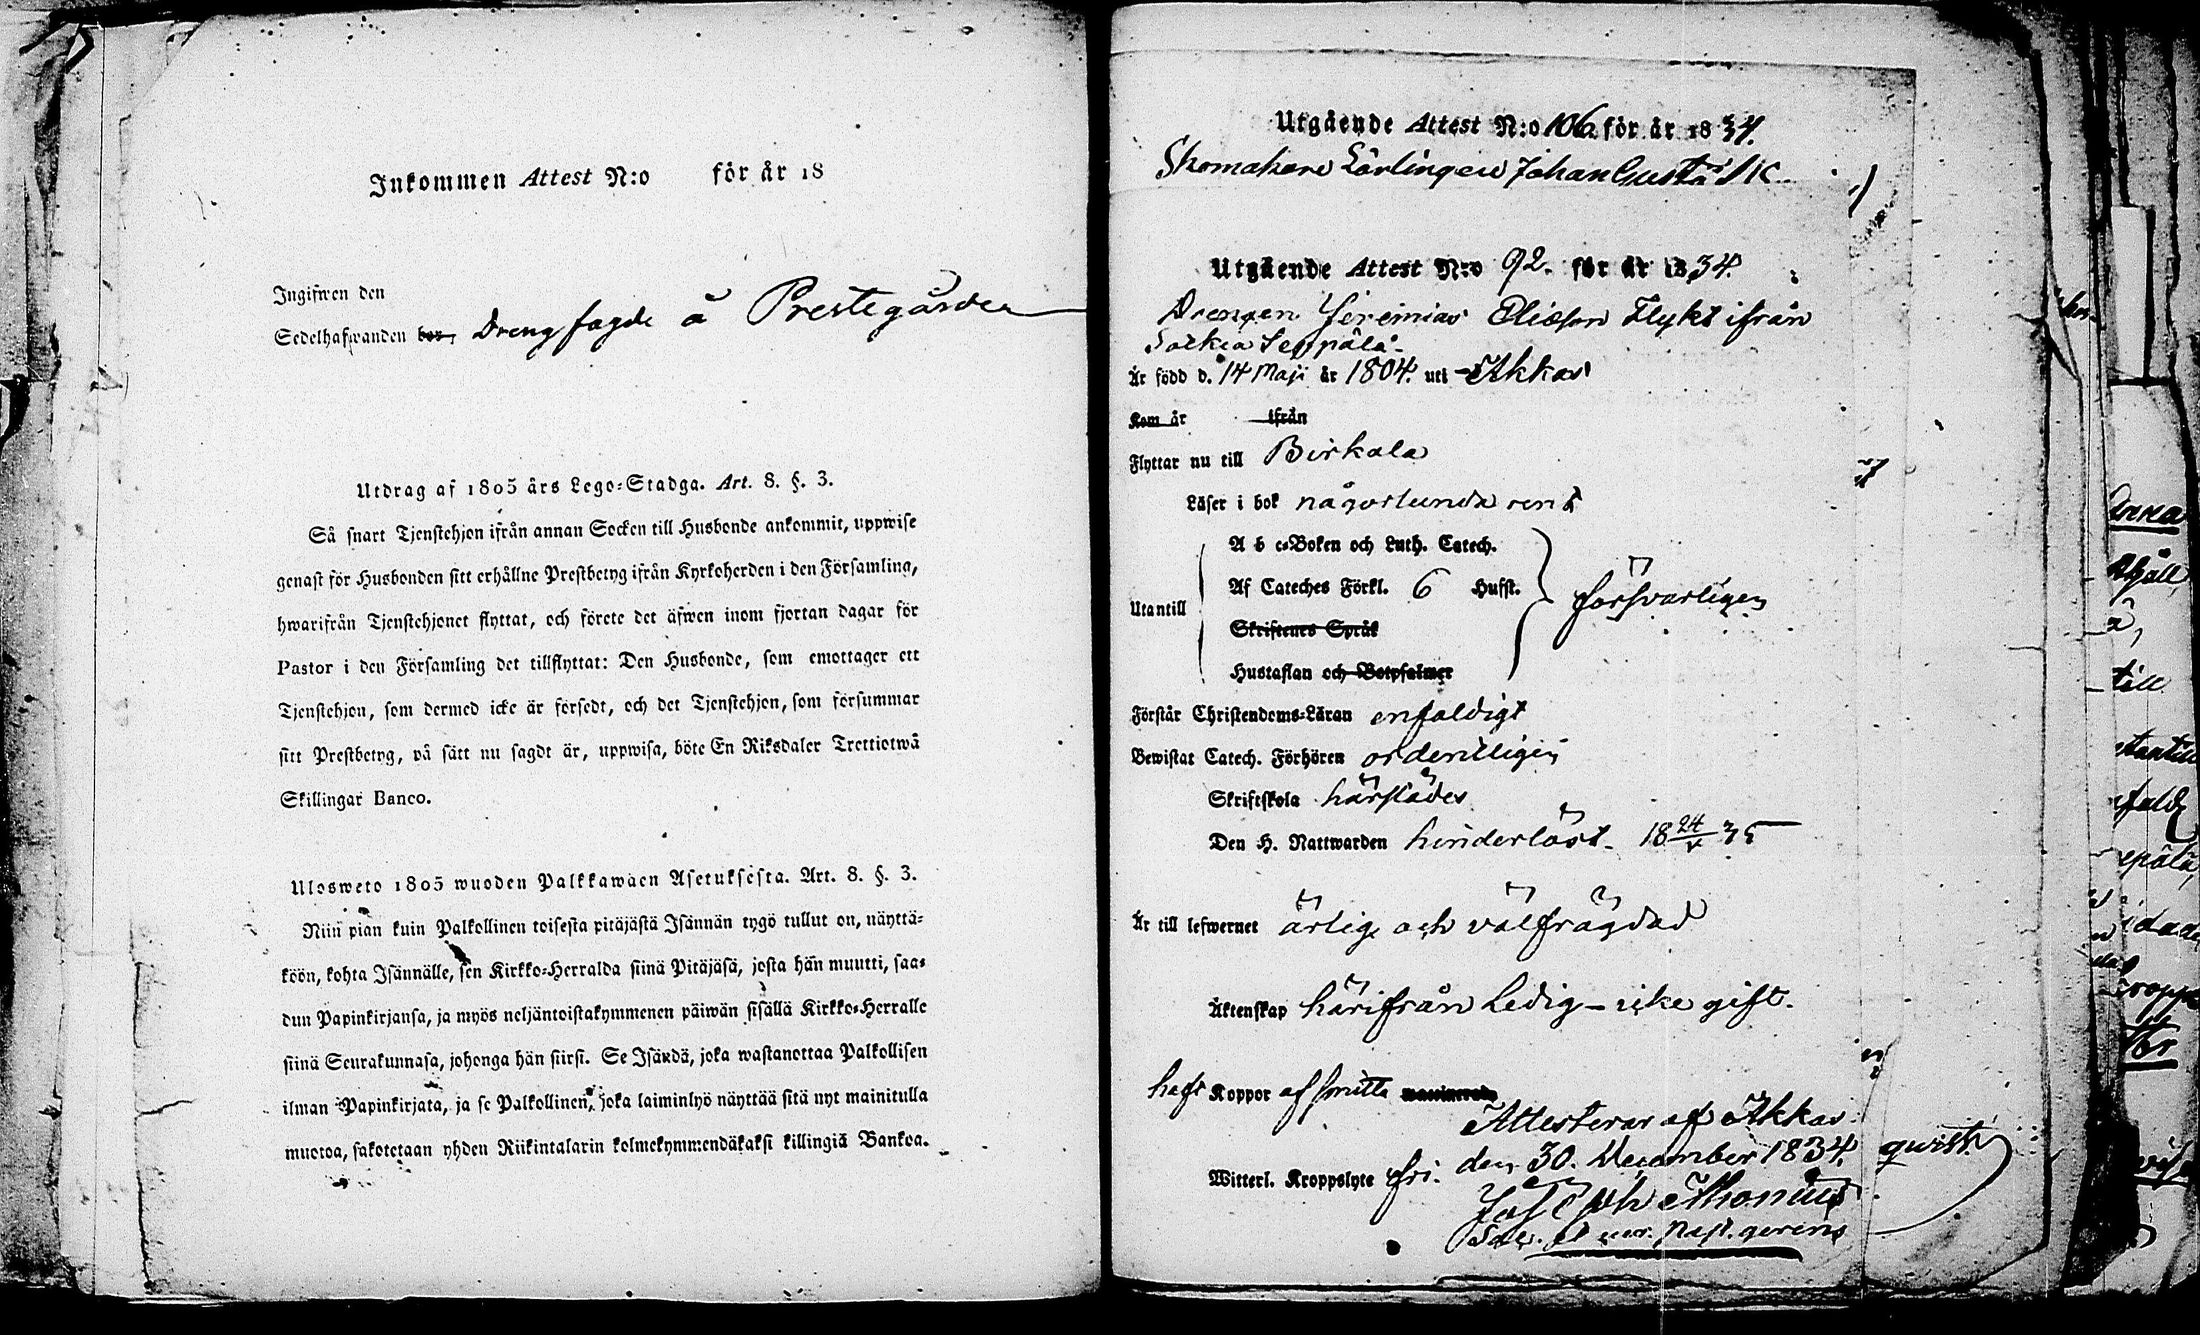 Inkommen Attest N:o för år 18
Ingifwen den
Sedelhafwanden bor, Dreng fogde å Prestegården
Utdrag af 1805 års Lego-Stadga. Art. 8. §. 3.
Så snart Tjenstehjon ifrån annan Socken till Husbonde ankommit, uppwise
genast för Husbonden sitt erhållne Prestbetyg ifrån Kyrkoherden i den Församling,
hwarifrån Tjenstehjonet flyttat, och förete det äfwen inom fjortan dagar för
Pastor i den Församling det tillflyttat: Den Husbonde, som emottager ett
Tjenstehjon, som dermed icke är försedt, och det Tjenstehjon, som försummar
sitt Prestbetyg, på sätt nu sagdt är, uppwisa, böte En Riksdaler Trettiotwå
Skillingar Banco.
Ulosweto 1805 wuoden Palkkawäen Asetuksesta. Art. 8. §. 3.
Niin pian kuin Palkollinen toisesta pitäjästä Isännän tygö tullut on, näyttä-
köön, kohta Isännälle, sen Kirkko-Herralda siinä Pitäjäsä, josta hän muutti, saa-
dun Papinkirjansa, ja myös neljäntoistakymmenen päiwän sisällä Kirkko-Herralle
siinä Seurakunnasa, johonga hän siirsi. Se Isändä, joka wastanottaa Palkollisen
ilman Papinkirjata, ja se Palkollinen, joka laiminlyö näyttää sitä nyt mainitulla
muotoa, sakotetaan yhden Riikintalarin kolmekymmendäkaksi killingiä Bankoa.
Utgående Attest N:o 106 för år 1834.
Skomakare Lärlingen Johan Gustaf
Utgående Attest N:o 92. för år 1834.
Drengen Jeremias Eliasson Flykt ifrån
Seppälä
Är född d. 14 Maji år 1804. uti Akkas
Kom år ifrån
Flyttar nu till Birkala
Läser i bok någorlunda rent
A b c-Boken och Luth. Catech.
Utantill Af Cateches Förkl. 6 Hufst. försvarligen
Skriftenes Språk
Hustaflan och Botpsalmer
Förstår Christendoms-Läran enfaldigt
Bewistat Catech. Förhören ordentligen
Skriftskola härstädes
Den H. Nattwarden hinderlöst. 18 24/ 35
Är till lefwernet ärlig och välfrägdad
Äktenskap härifrån Ledig – icke gift.
haft Koppor af smitta waccinerad
Attesterar af Akkas
Witterl. Kroppslyte fri. den 30. December 1834. qvist.
Joseph
past. gerens
Anna
till